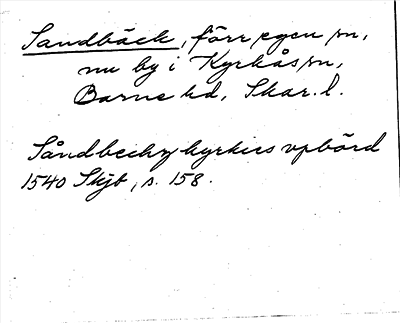 Sandbäck, förr egen sn,
nu by i Kyrkås sn,
Barne hd, Skar. l.
Såndbeckz kyrkies vpbörd
1540 Skjb, s. 158.